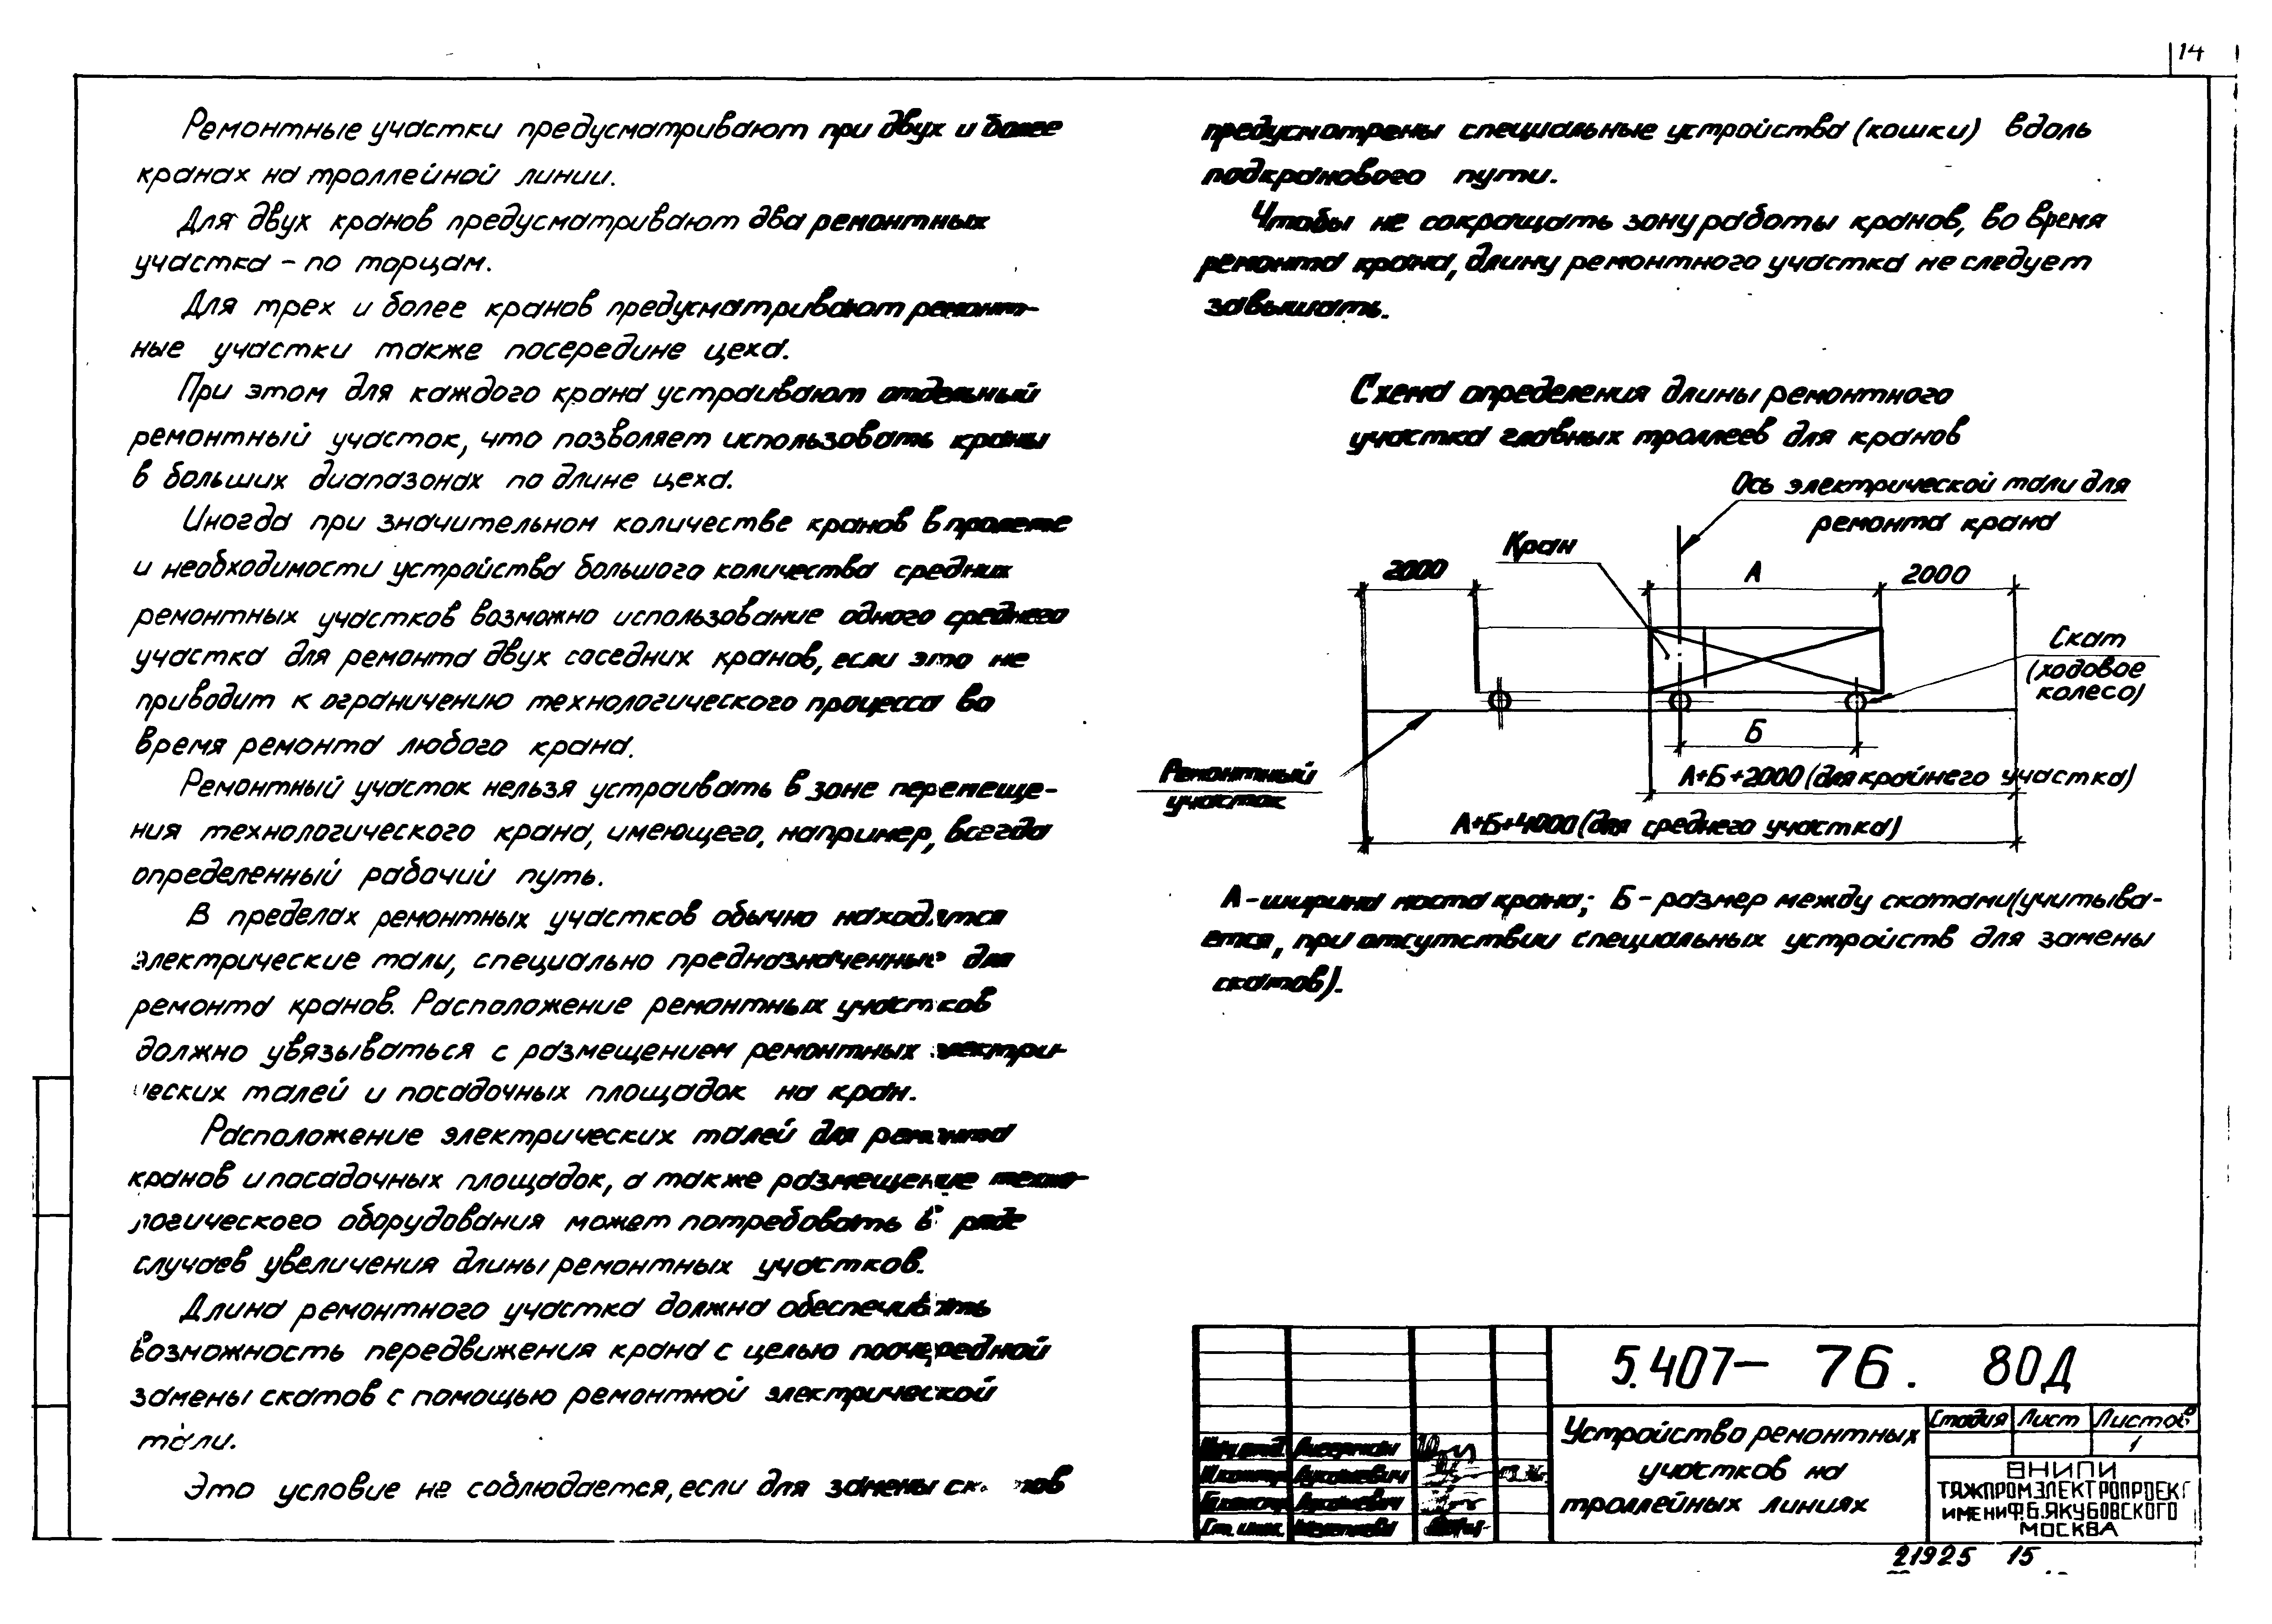 14
Ремонтные участки предусматривают при двух и более
кранах на троллейной линии.
Для двух кранов предусматривают два ремонтных
участка – по торцам.
Для трех и более кранов предусматривают ремонт-
ные участки также посередине цеха.
При этом для каждого крана устраивают отдельный
ремонтный участок, что позволяет использовать краны
в больших диапазонах по длине цеха.
Иногда при значительном количестве кранов в пролете
и необходимости устройства большого количества средних
ремонтных участков возможно использование одного среднего
участка для ремонта двух соседних кранов, если это не
приводит к ограничению технологического процесса во
время ремонта любого крана.
Ремонтный участок нельзя устраивать в зоне перемеще-
ния технологического крана, имеющего, например, всегда
определенный рабочий путь.
В пределах ремонтных участков обычно находятся
электрические тали, специально предназначенные для
ремонта кранов. Расположение ремонтных участков
должно увязываться с размещением ремонтных электри-
ческих талей и посадочных площадок на кран.
Расположение электрических талей для ремонта
кранов и посадочных площадок, а также размещение техно-
логического оборудования может потребовать в ряде
случаев увеличения длины ремонтных участков.
Длина ремонтного участка должна обеспечивать
возможность передвижения крана с целью поочередной
замены скатов с помощью ремонтной электрической
тали.
Это условие не соблюдается, если для замены скатов
предусмотрены специальные устройства (кошки) вдоль
подкранового пути.
Чтобы не сокращать зону работы кранов, во время
ремонта крана, длину ремонтного участка не следует
завышать.
Схема определения длины ремонтного
участка главных троллеев для кранов
Ось электрической тали для
ремонта крана
Кран
2000
А
2000
Скат
(ходовое
колесо)
Б
Ремонтный
участок
А+Б+2000 (для крайнего участка)
А+Б+4000 (для среднего участка)
А – ширина моста крана; Б – размер между скатами (учитыва-
ется, при отсутствии специальных устройств для замены
скатов).
5.407– 76. 80Д
Устройство ремонтных
участков на
троллейных линиях
Стадия Лист Листов
1
ВНИПИ
ТЯЖПРОМЭЛЕКТРОПРОЕКТ
ИМЕНИ Ф.Б.ЯКУБОВСКОГО
МОСКВА
Н.контр. Лукашевич
Лукашевич
Ст. инж.
21925 15